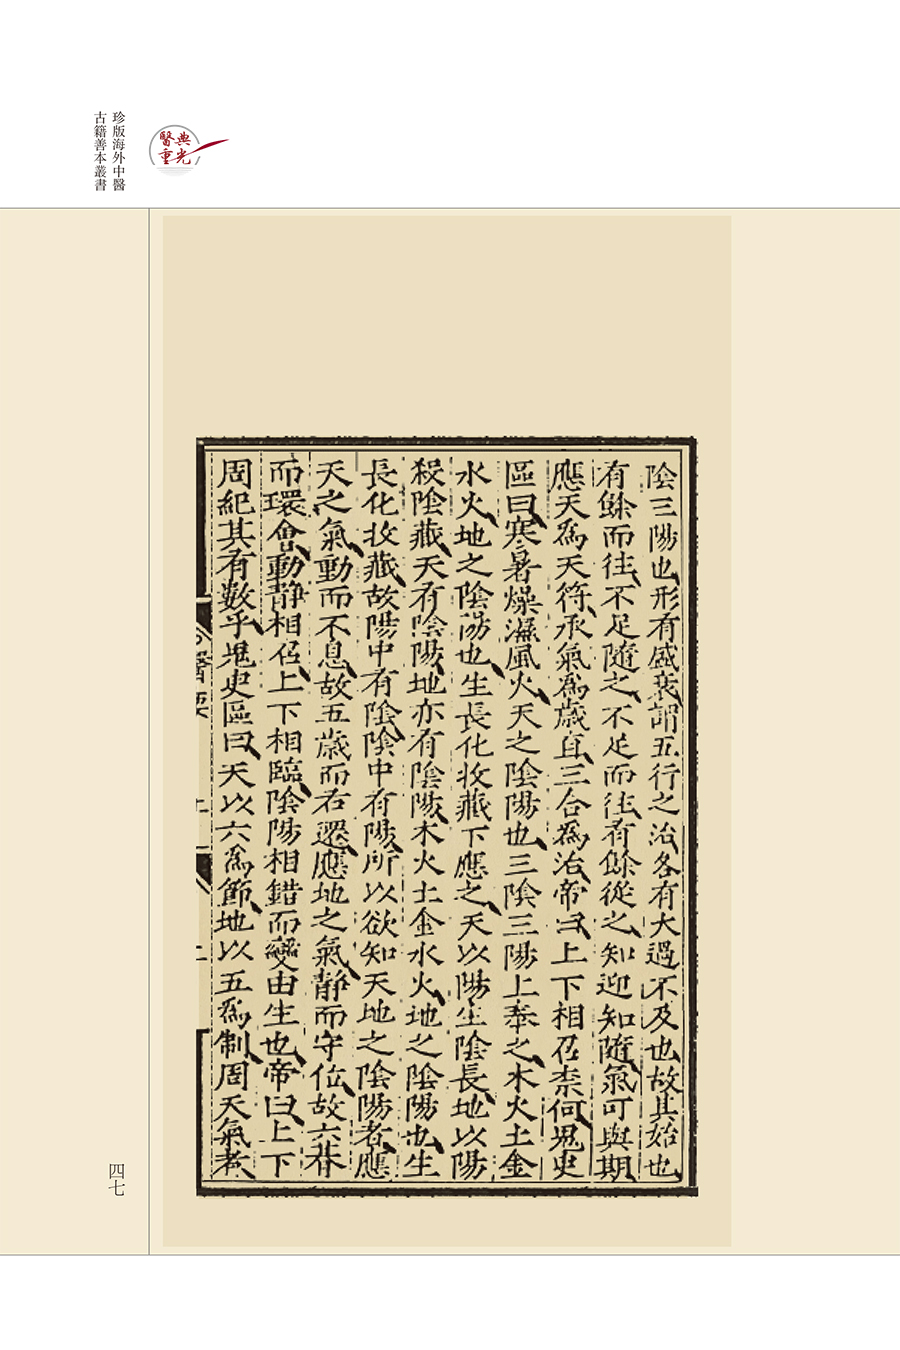 珍版海外中醫
古籍善本叢書
醫典
重光
陰三陽也形有盛衰謂五行之治各有太過不及也故其始也
有餘而往不足隨之不足而往有餘從之知迎知隨氣可與期
應天爲天符承氣爲歲直三合爲治帝曰上下相召柰何鬼臾
區曰寒暑燥濕風火天之陰陽也三陰三陽上奉之木火土金
水火地之陰陽也生長化收藏下應之天以陽生陰長地以陽
殺陰藏天有陰陽地亦有陰陽木火土金水火地之陰陽也生
長化收藏故陽中有陰陰中有陽所以欲知天地之陰陽者應
天之氣動而不息故五歲而右遷應地之氣靜而守位故六朞
而環會動靜相召上下相臨陰陽相錯而變由生也帝曰上下
周紀其有數乎鬼臾區曰天以六爲節地以五爲制周天氣者
醫要
四七